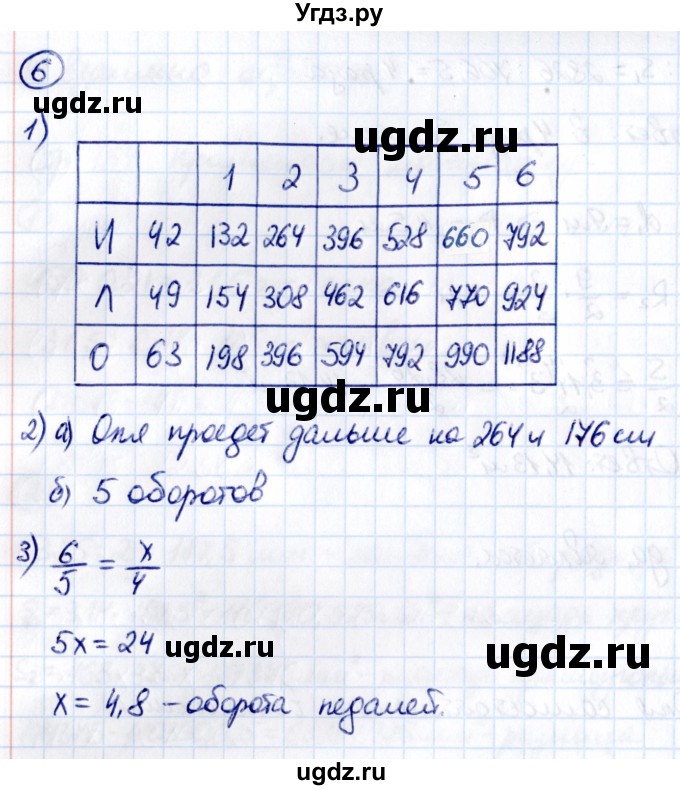 Угдз.ру
6
ugdz.ru
ugdz.ru
1)
1 2 3 4 5 6
И 42 132 264 396 528 660 792
Л 49 154 308 462 616 770 924
О 63 198 396 594 792 990 1188
ugdz.ru
2) а) Оля проедет дальше на 264 и 176 см
б) 5 оборотов
3) 6/5 = x/4
5x = 24
ugdz.ru
ugdz.ru
x = 4,8 – оборота педалей.
ugdz.ru